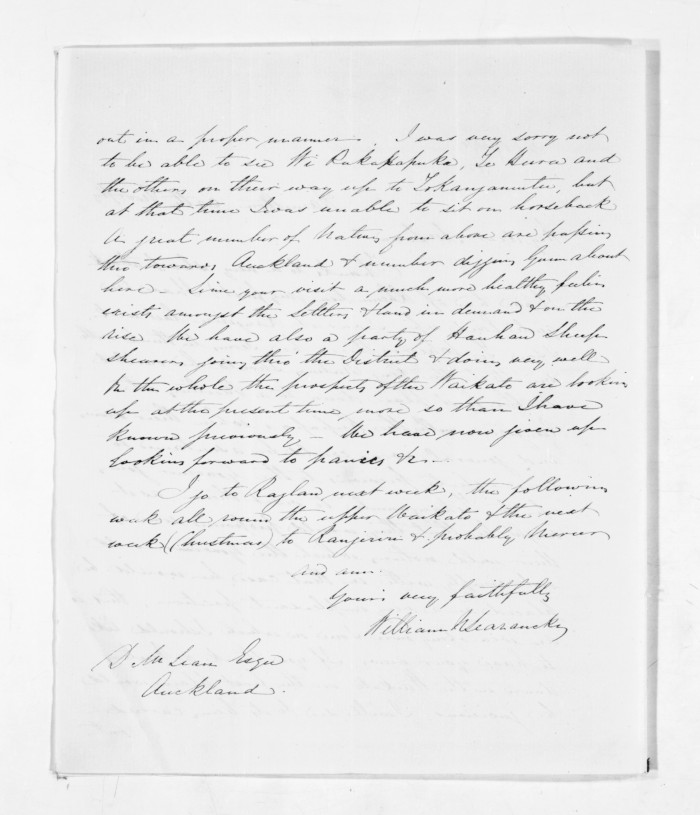 out in a proper manner. I was very sorry not
to be able to see Wi Rukapapuka, Te Heuru and
the others on their way up to Tokangamutu, but
at that time I was unable to sit on horseback
A great number of Natives from above are passing
thro towards Auckland & number digging Gum about
here — Since your visit a much more healthy feeling
exists amongst the Settlers & land in demand & on the
rise We have also a party of Hauhau Sheep
shearers going thro' the District & doing very well
On the whole the prospects of the Waikato are looking
up at the present time more so than I have
known previously — We have now given up
looking forward to panics &c.
I go to Raglan next week, the following
week all round the upper Waikato & the next
week (Christmas) to Rangiriri & probably Mercer
and am
Yours very faithfully
William N Searancke
D McLean Esqre
Auckland.